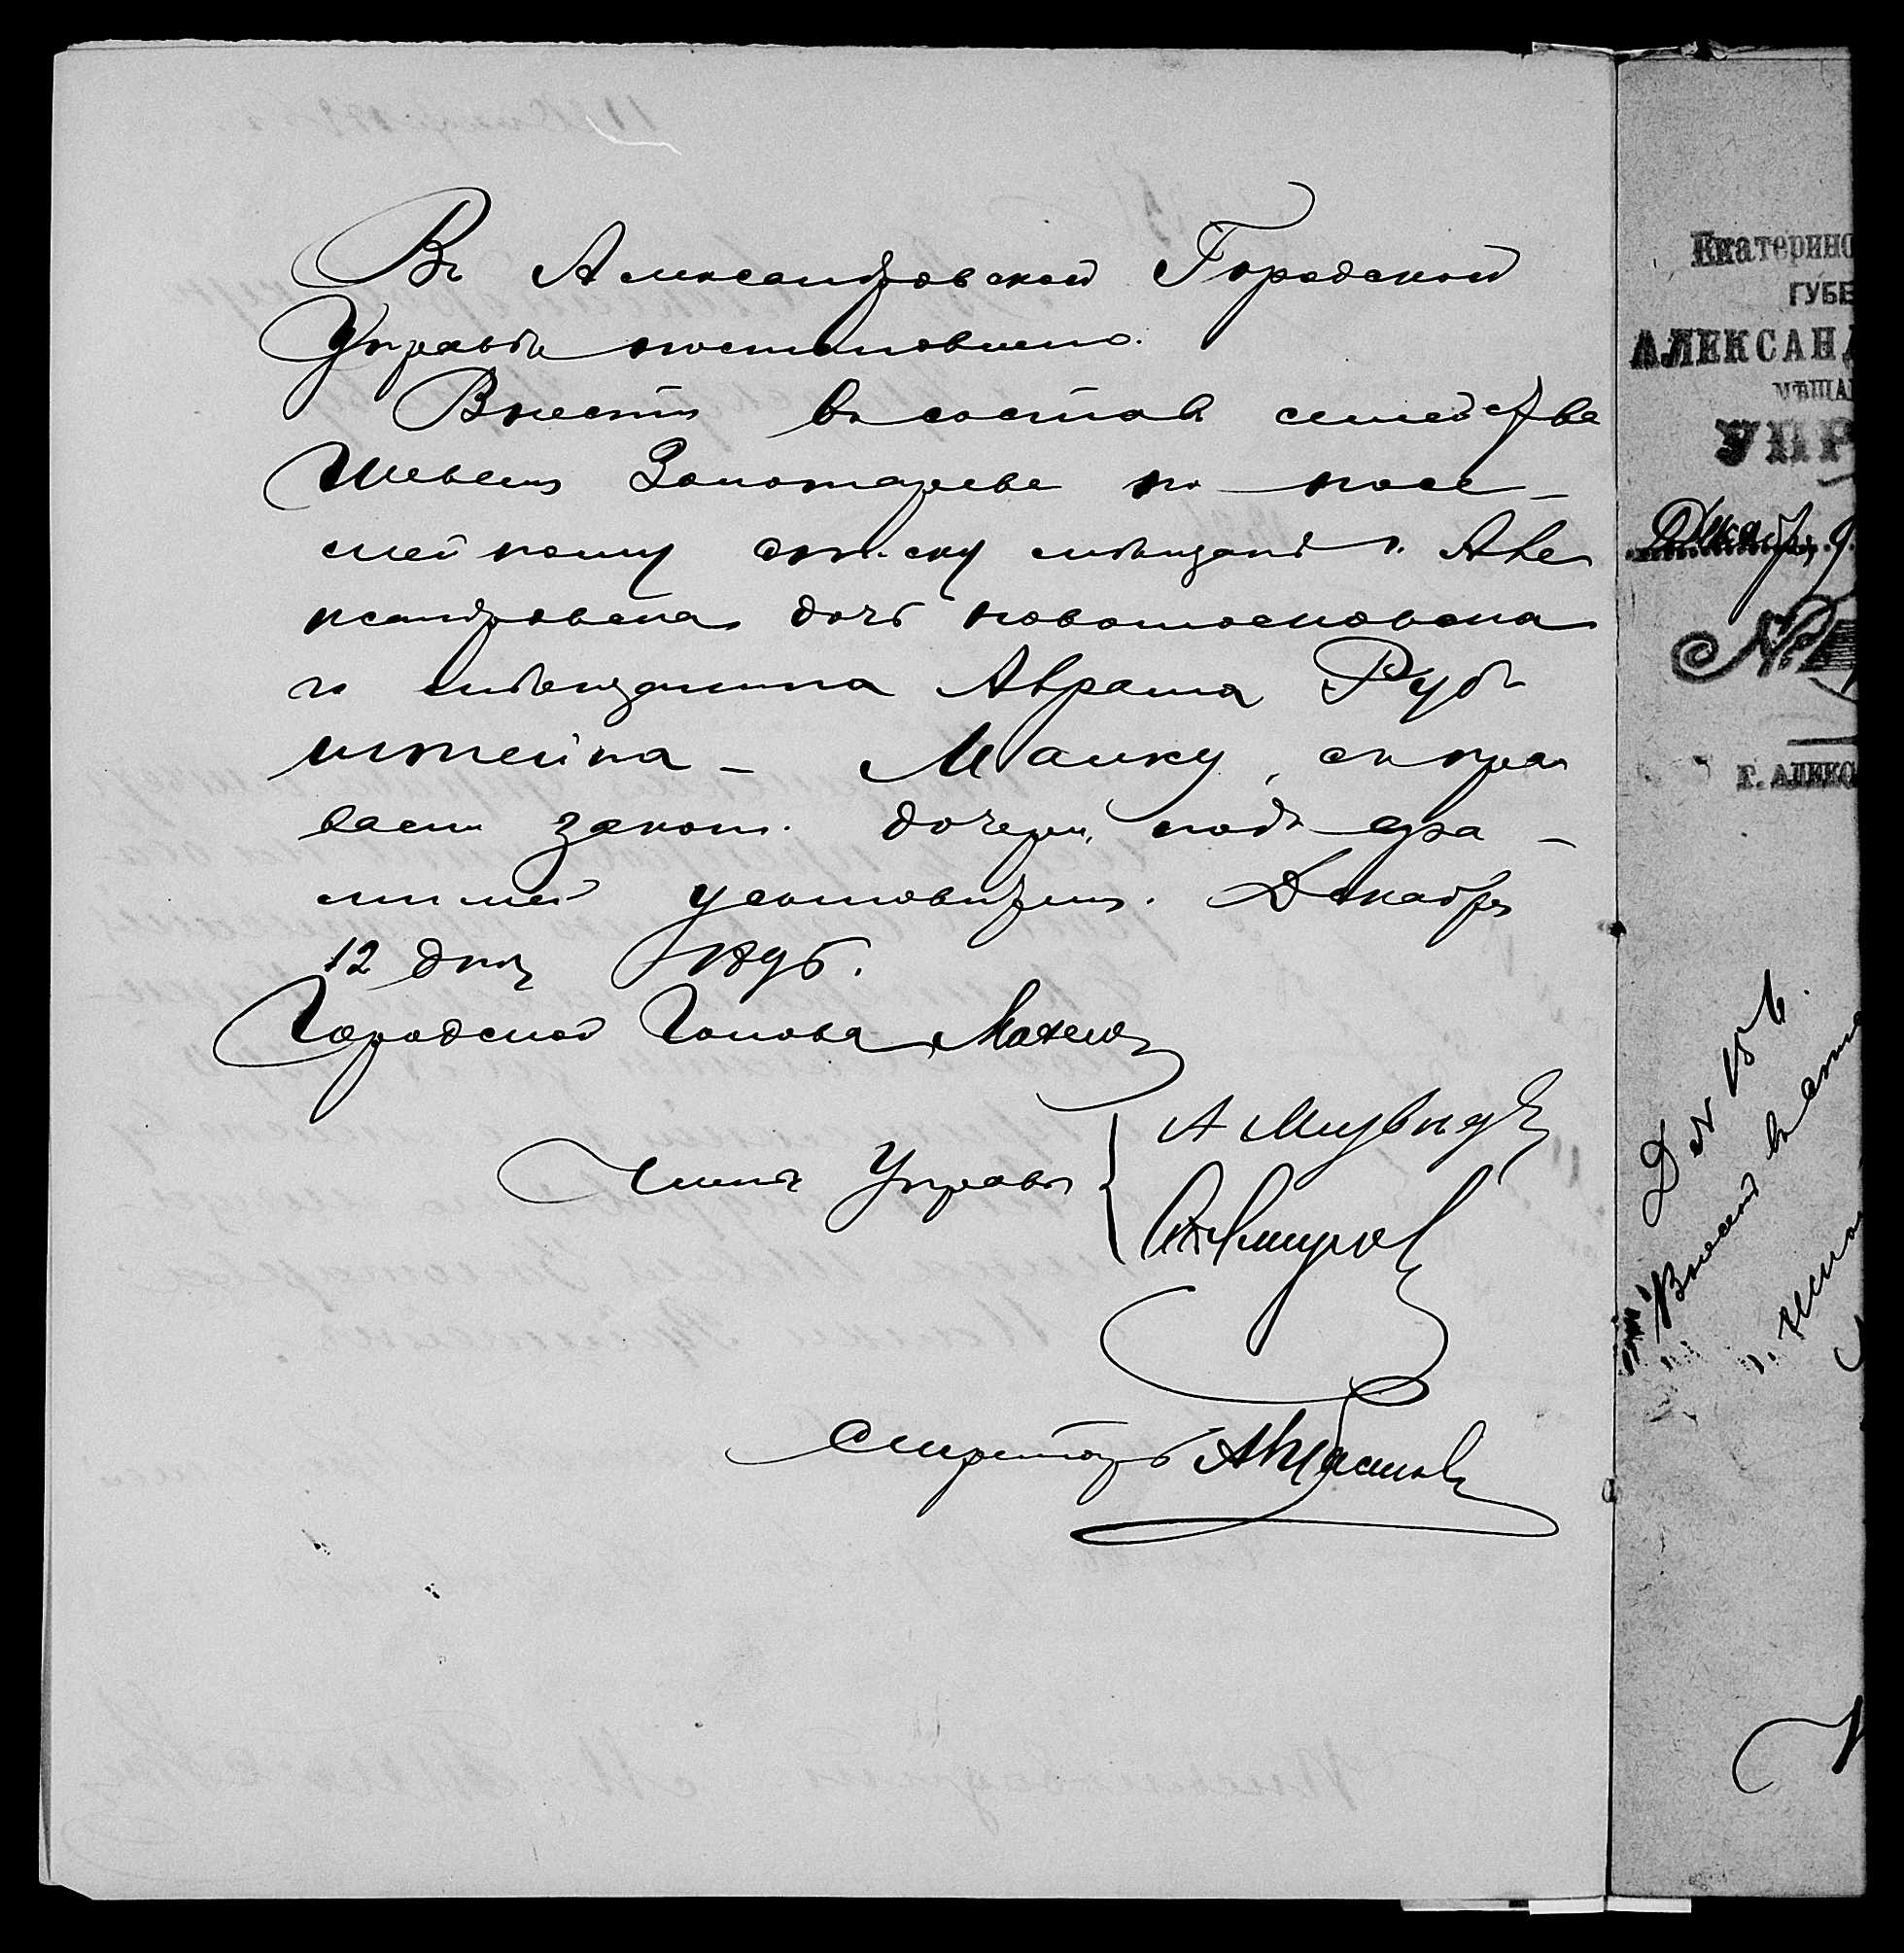 Въ Александровской Городской
Управѣ постановлено:
Внести въ составъ семейства
Шевеля Золотарева по посе-
мейному списку мѣщанъ г. Але
ксандровска дочь новомосковска
го мѣщанина Абрама Руб
штейна - Маику, съ пра
вами законн. дочери, подъ фа-
милией усыновителя. Декабря
12 дня 1896.
Городской Голова
Члены Управы
Секретарь
Екатерино
ГУБЕ
АЛЕКСАНД
МѢЩА
УПР
Декабря 9
№
Г. АЛЕКС
Д № 156.
Внесенъ въ